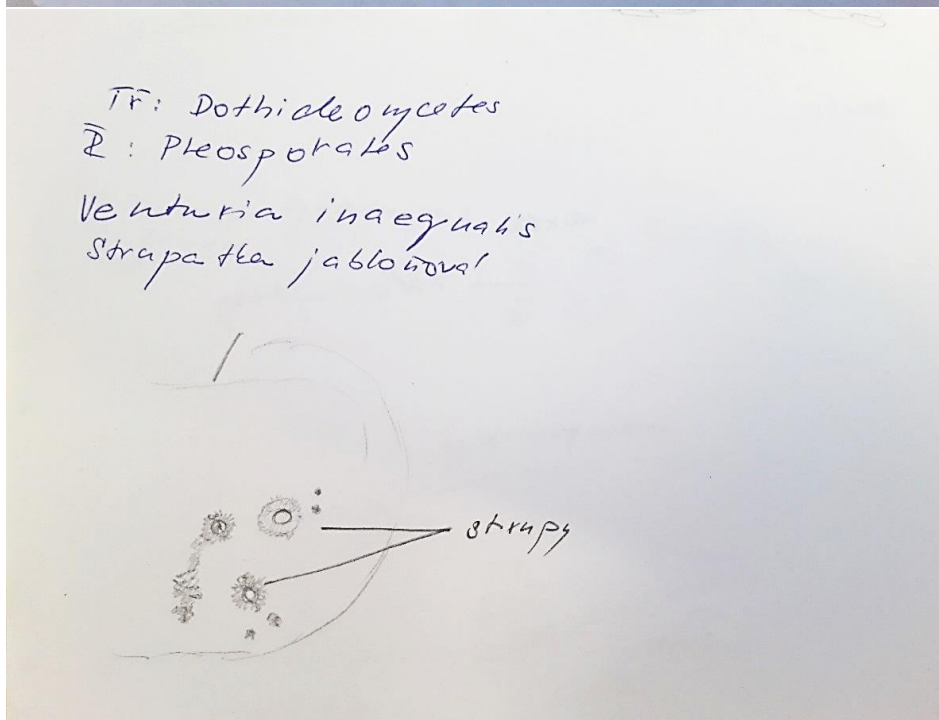 Tř: Dothideomycetes
Ř: Pleosporales
Venturia inaequalis
Strupatka jabloňová
strupy